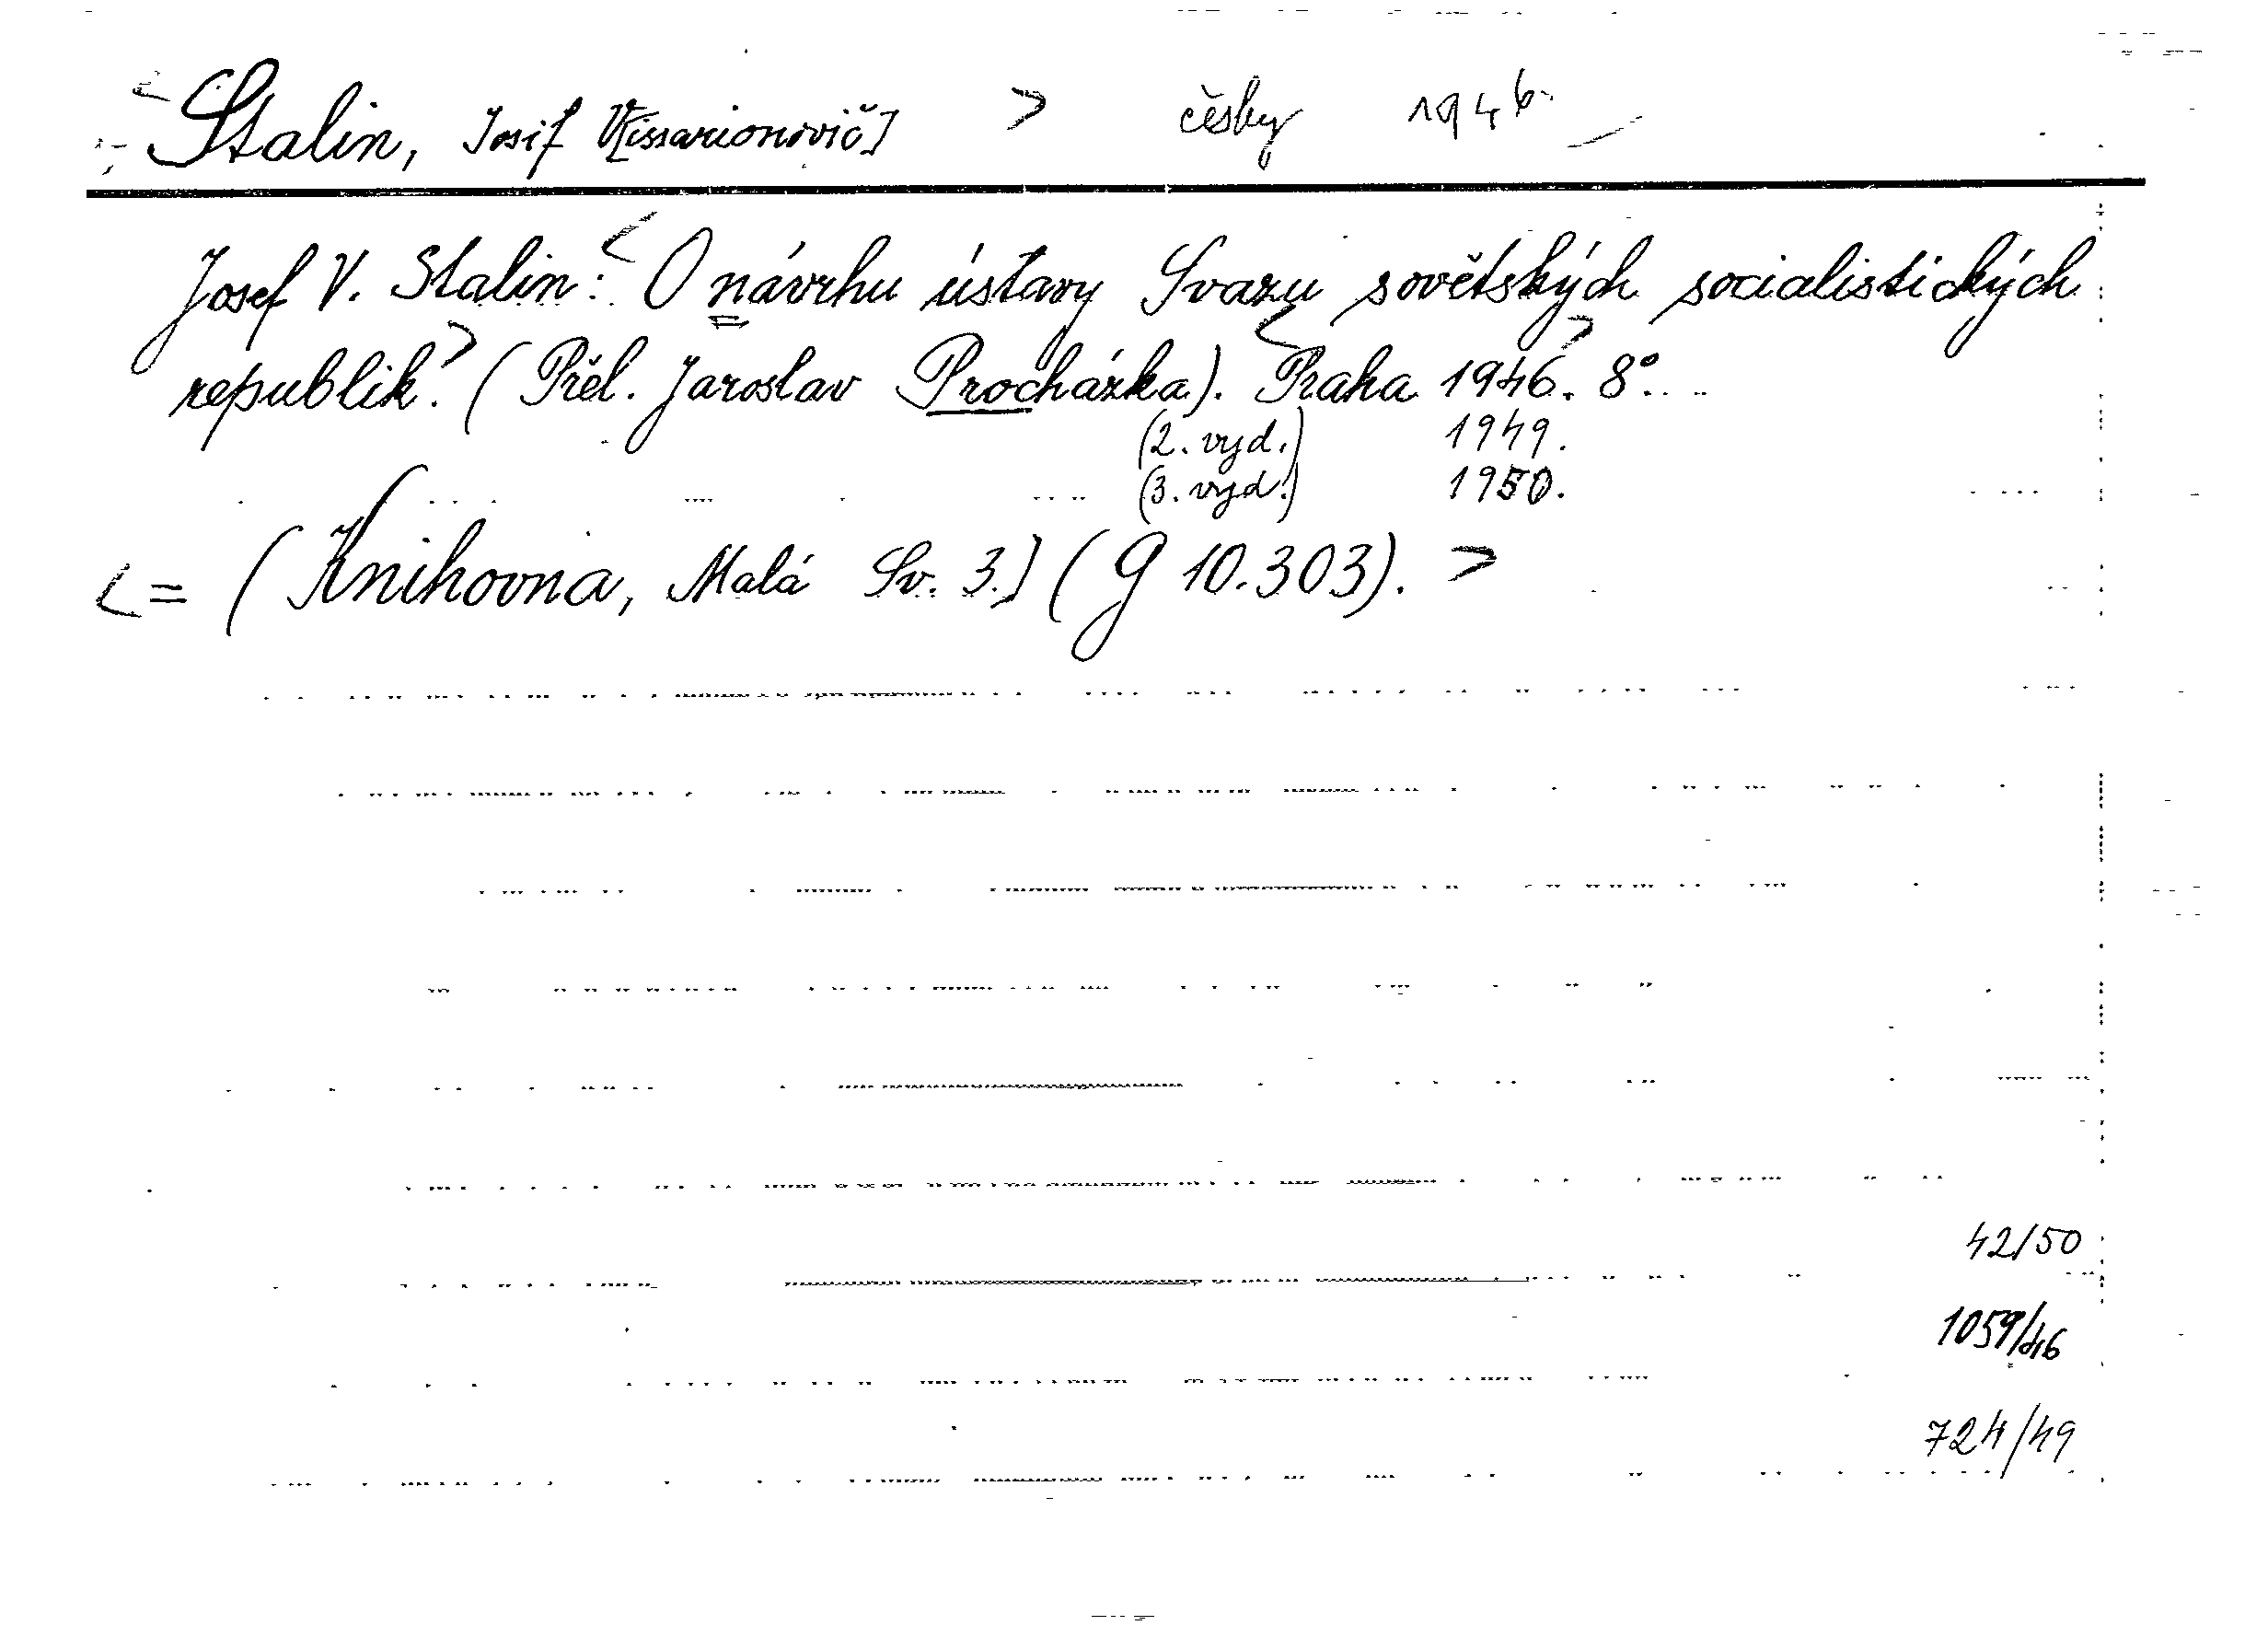 <Stalin, Josif V[issarionovič] > česky 1946
Josef V. Stalin: <O návrhu ústavy Svazu sovětských socialistických
republik.> (Přel. Jaroslav Procházka). <Praha 1946>. 8°.
(2. vyd.) 1949.
(3. vyd.) 1950.
<= (Knihovna, Malá Sv. 3.) (G 10.303). >
42/50
1059/46
724/49